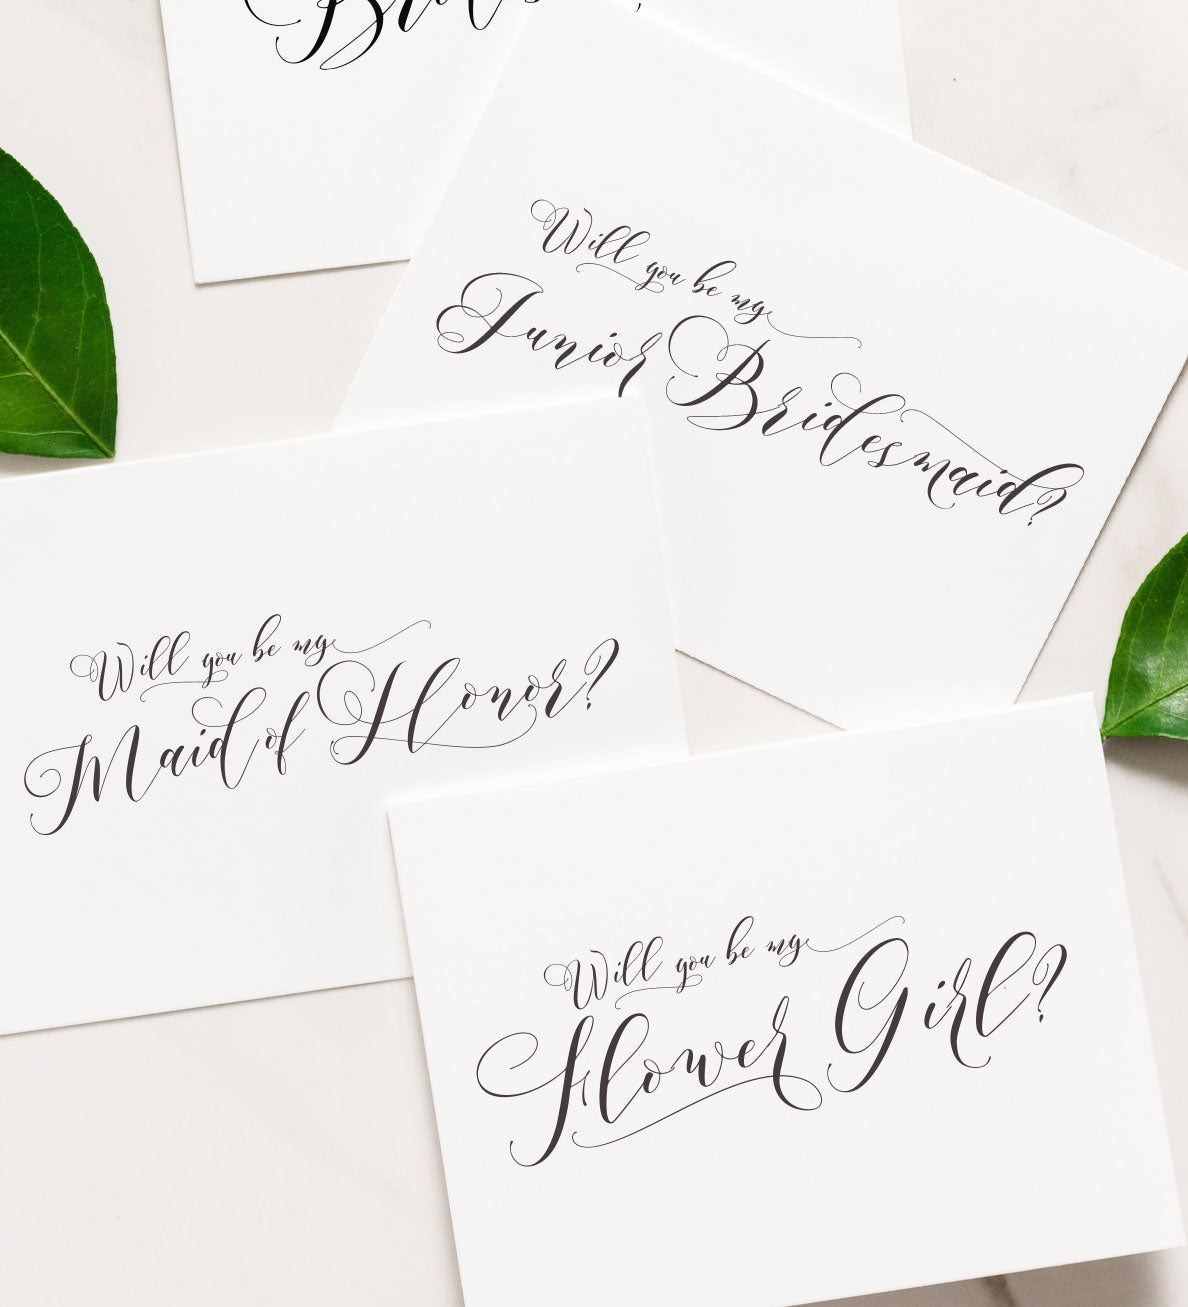 Will you be my
Junior Bridesmaid?
Will you be my
Maid of Honor?
Will you be my
Flower Girl?